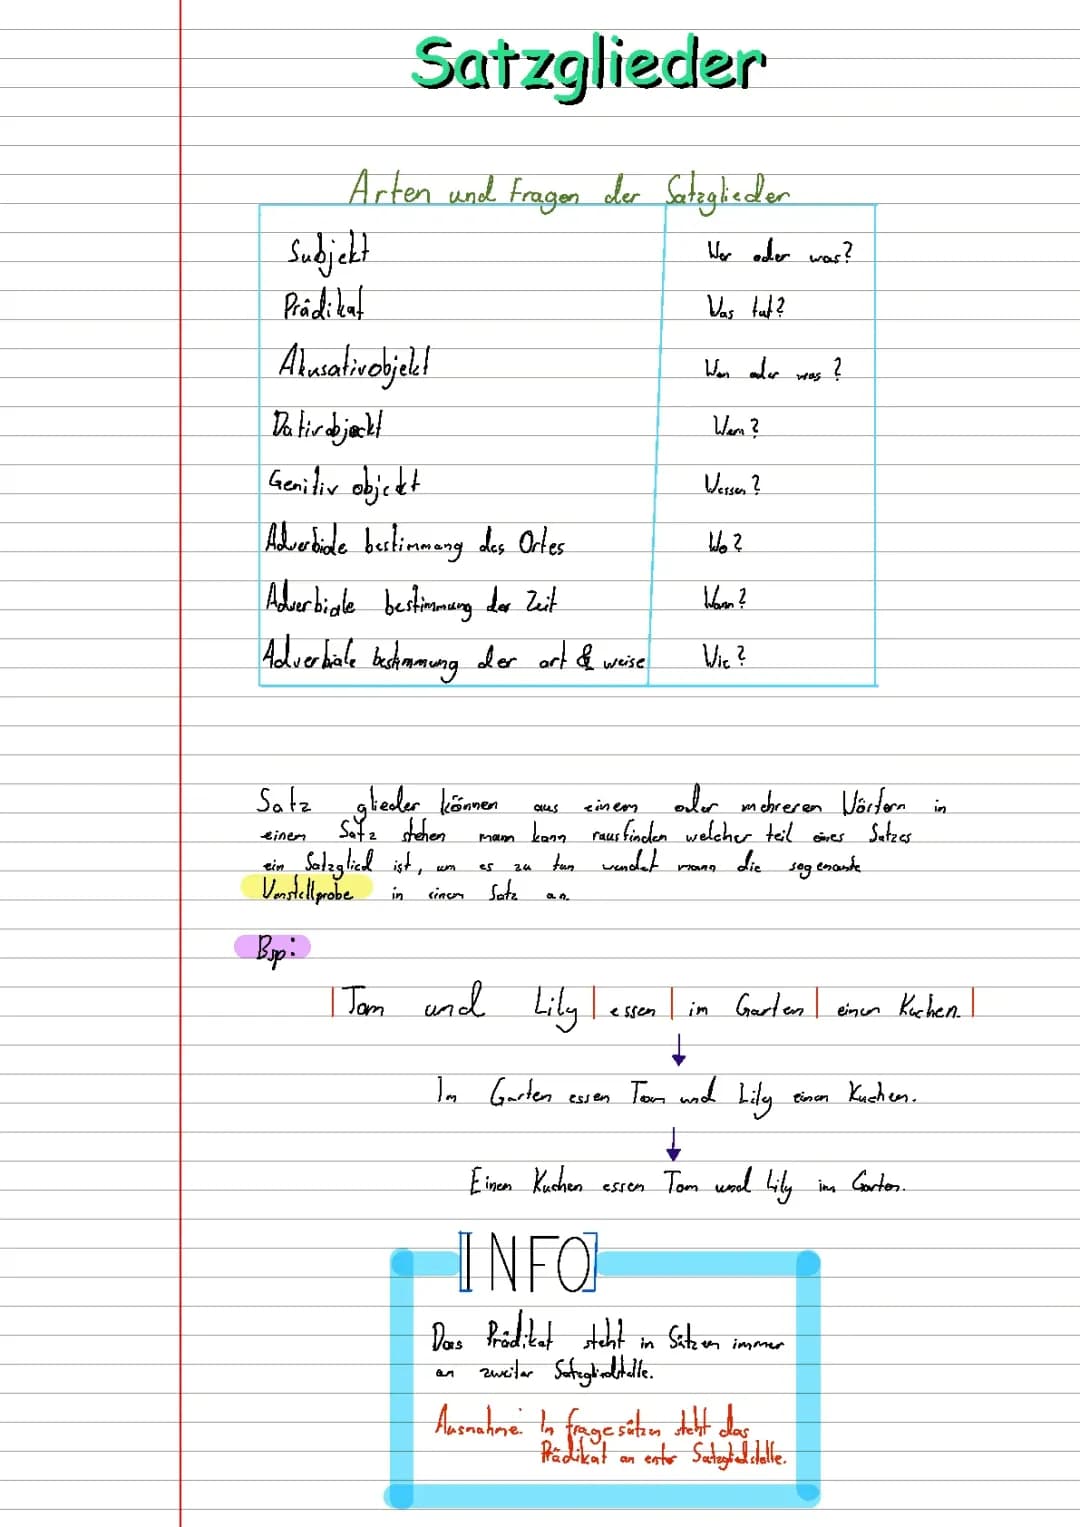 Satzglieder
Arten und Fragen der Satzglieder
Subjekt Wer oder was?
Prädikat Was tut?
Akusativobjekt Wen oder was?
Dativobjeckt Wem?
Genitiv objekt Wessen?
Adverbiale bestimmung des Ortes Wo?
Adverbiale bestimmung der Zeit Wann?
Adverbiale bestimmung der art & weise Wie?
Satz glieder können aus einem oder mehreren Wörtern in
einem Satz stehen mam kann rausfinden welcher teil eines Satzes
ein Satzglied ist, um es zu tun wendet mann die sogenante
Umstellprobe in einem Satz an.
Bsp:
|Tom und Lily | essen | im Garten | einen Kuchen. |
Im Garten essen Tom und Lily einen Kuchen.
Einen Kuchen essen Tom und Lily im Garten.
[INFO]
Das Prädikat steht in Sätzen immer
an zweiter Satzgliedstelle.
Ausnahme: In fragesätzen steht das
Prädikat an erster Satzgliedstelle.